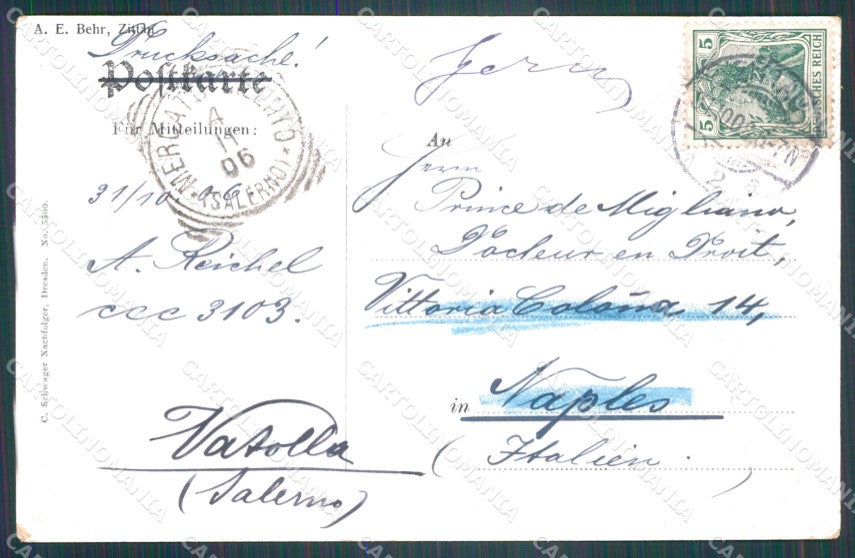 A. E. Behr, Zittau
Drucksache!
Postkarte
Für Mitteilungen:
MERCATO
(SALERNO)
06
31/10. 06.
A. Reichel
ccc 3103.
Vatolla
(Salerno)
C. Schwager Nachfolger, Dresden. No. 5500.
5 5
DEUTSCHES REICH
An
Herrn
Prince de Migliano,
Docteur en Droit,
Vittoria Coloña 14,
in Naples
(Italien.
CARTOLINOMANIA